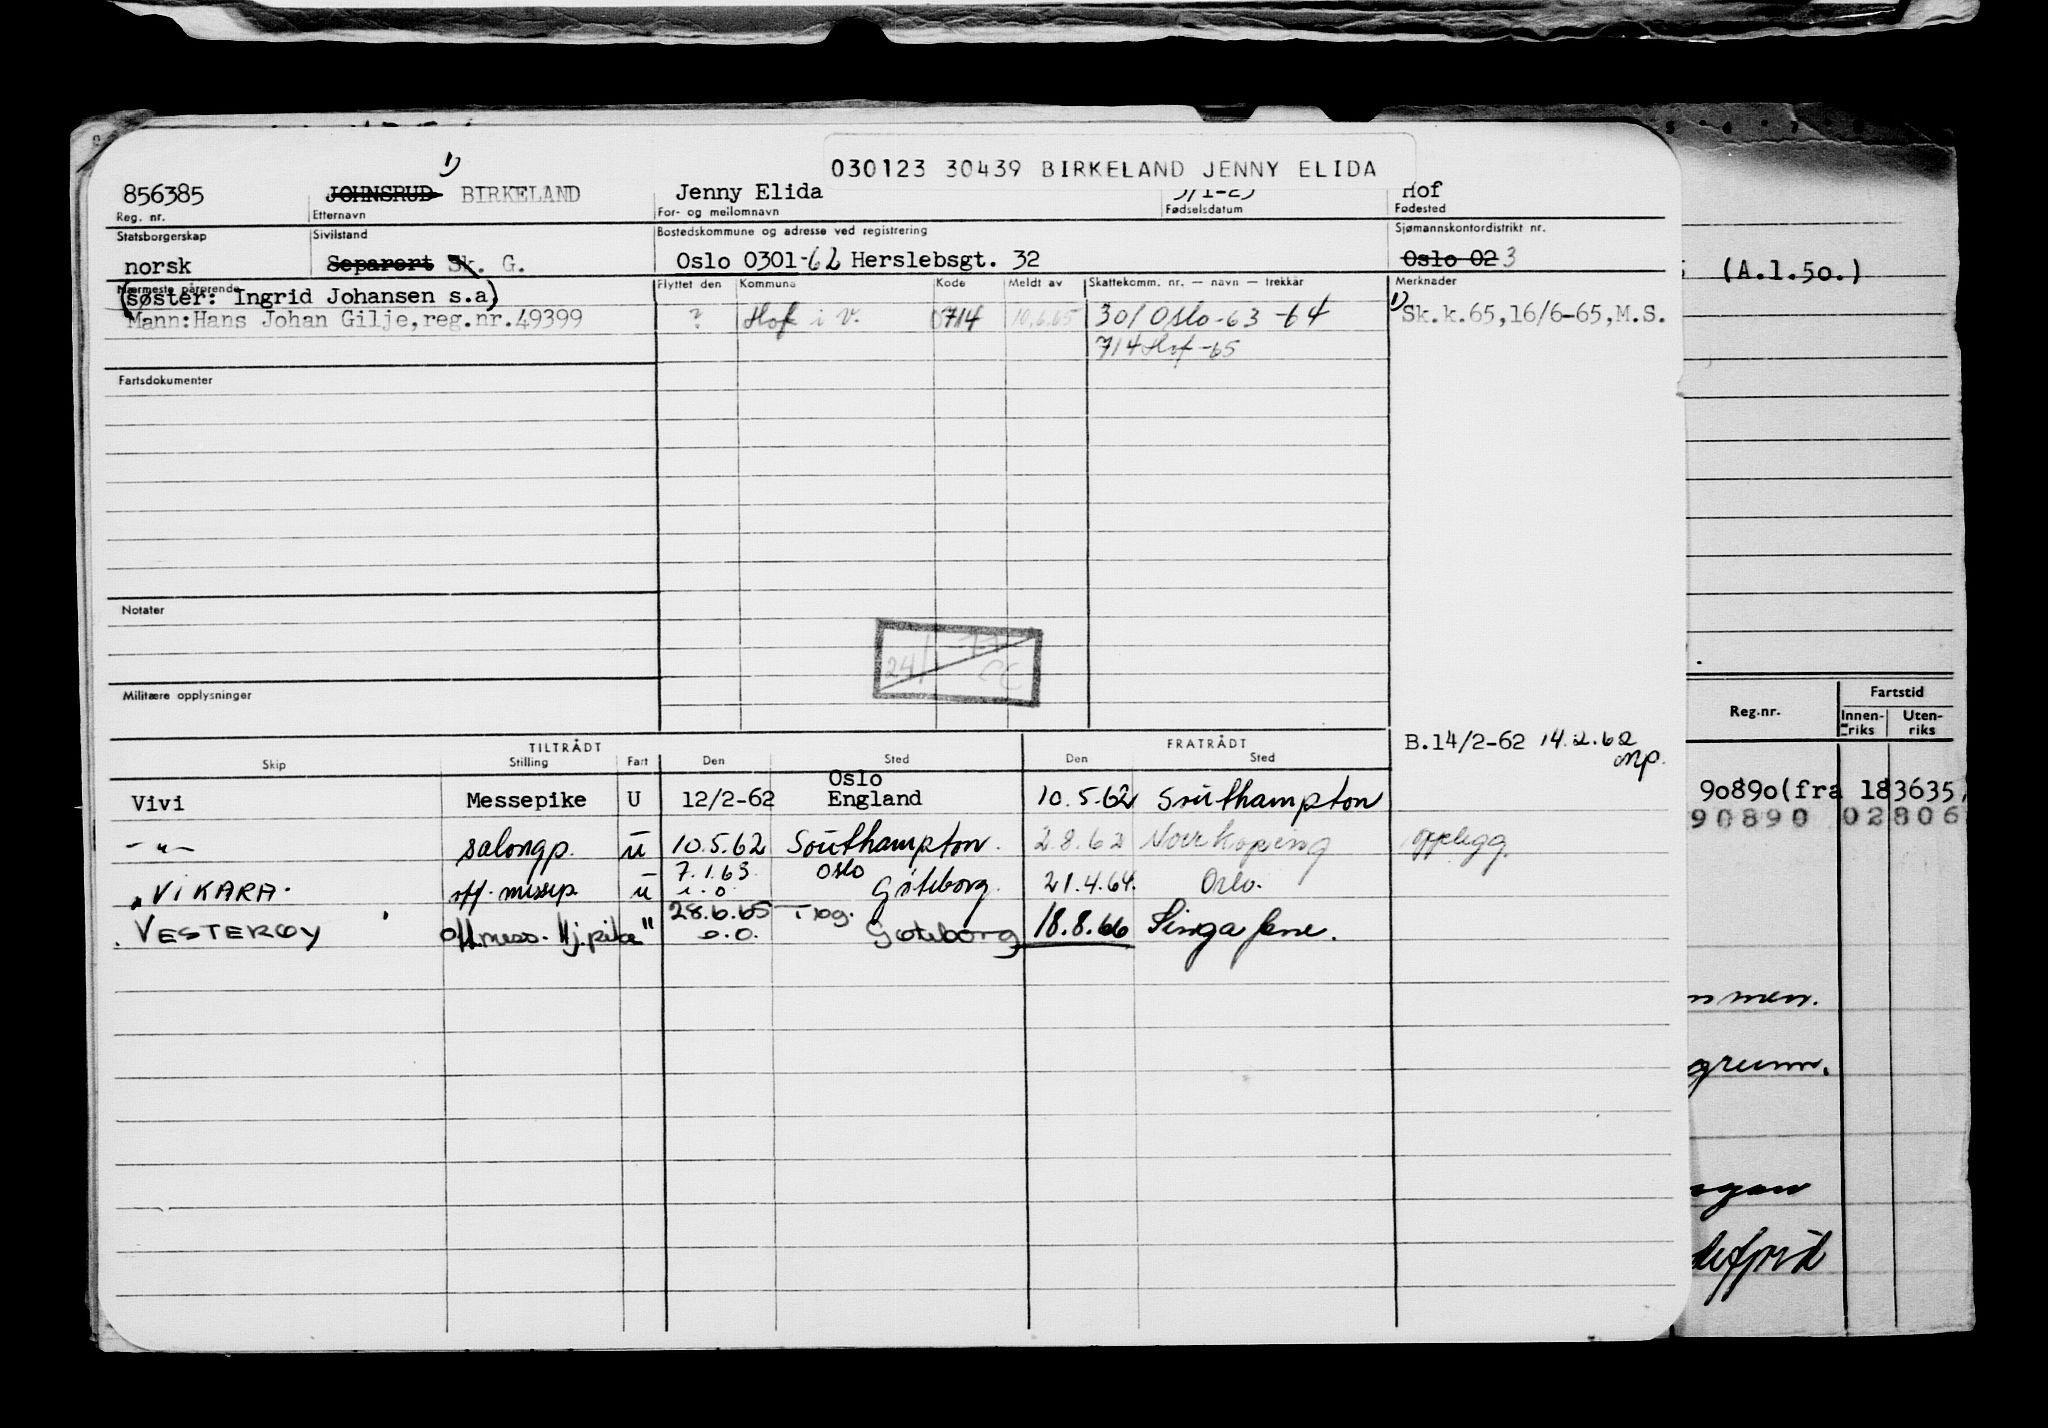 030123 30439 BIRKELAND JENNY ELIDA
1)
856385 JOHNSRUD BIRKELAND Jenny Elida 3/1-23 Hof
Reg. nr. Etternavn For- og mellomnavn Fødselsdatum Fødested
Statsborgerskap Sivilstand Bostedskommune og adresse ved registrering Sjømannskontordistrikt nr.
norsk Separert Sk. G. Oslo 0301-62 Herslebsgt. 32 Oslo 02 3
Nærmeste pårørende Flyttet den Kommune Kode Meldt av Skattekomm. nr. — navn — trekkår Merknader
(søster: Ingrid Johansen s.a)
Mann:Hans Johan Gilje,reg.nr.49399 ? Hof i V. 0714 10.6.65 301 Oslo-63-64 1) Sk.k.65,16/6-65,M.S.
714 Hof-65
Fartsdokumenter
Notater
24/1-77
CC
Militære opplysninger
TILTRÅDT FRATRÅDT B.14/2-62 14.2.62
Skip Stilling Fart Den Sted Den Sted mp.
Oslo
Vivi Messepike U 12/2-62 England 10.5.62 Southampton
-"- salongp. u 10.5.62 Southampton. 2.8.62 Norrkøping opplegg.
7.1.63 Oslo
"VIKARA. off. messep u i.o. Gøteborg. 21.4.64. Oslo.
28.6.65 Tbg.
VESTERØY off.mess. hj.pike " o.o. Gøteborg 18.8.66 Singapore.
(A.l.50.)
Reg.nr. Fartstid
Innen-riks Uten-riks
90890(fra 183635,
90890 02806
mmen.
grunn.